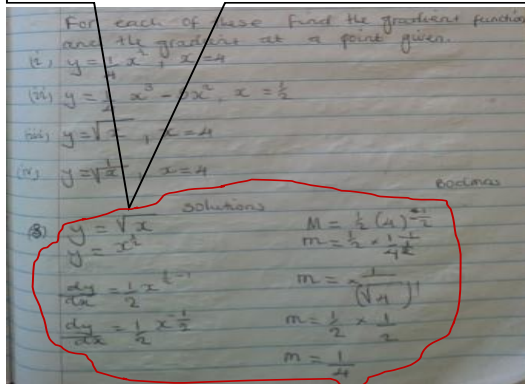 For each of these find the gradient function
and the gradient at a point given.
(i) y = 1/4 x², x = 4
(ii) y = x³ - x², x = 1/2
(iii) y = √x, x = 4
(iv) y = , x = 4
Bodmas
solutions
(3) y = √x
y = x^½
dy/dx = 1/2 x
dy/dx = 1/2 x^-½
M = 1/2 (4)^-½
m = 1/2 × 1/4^½
m = 1/(√4)¹
m = 1/2 × 1/2
m = 1/4